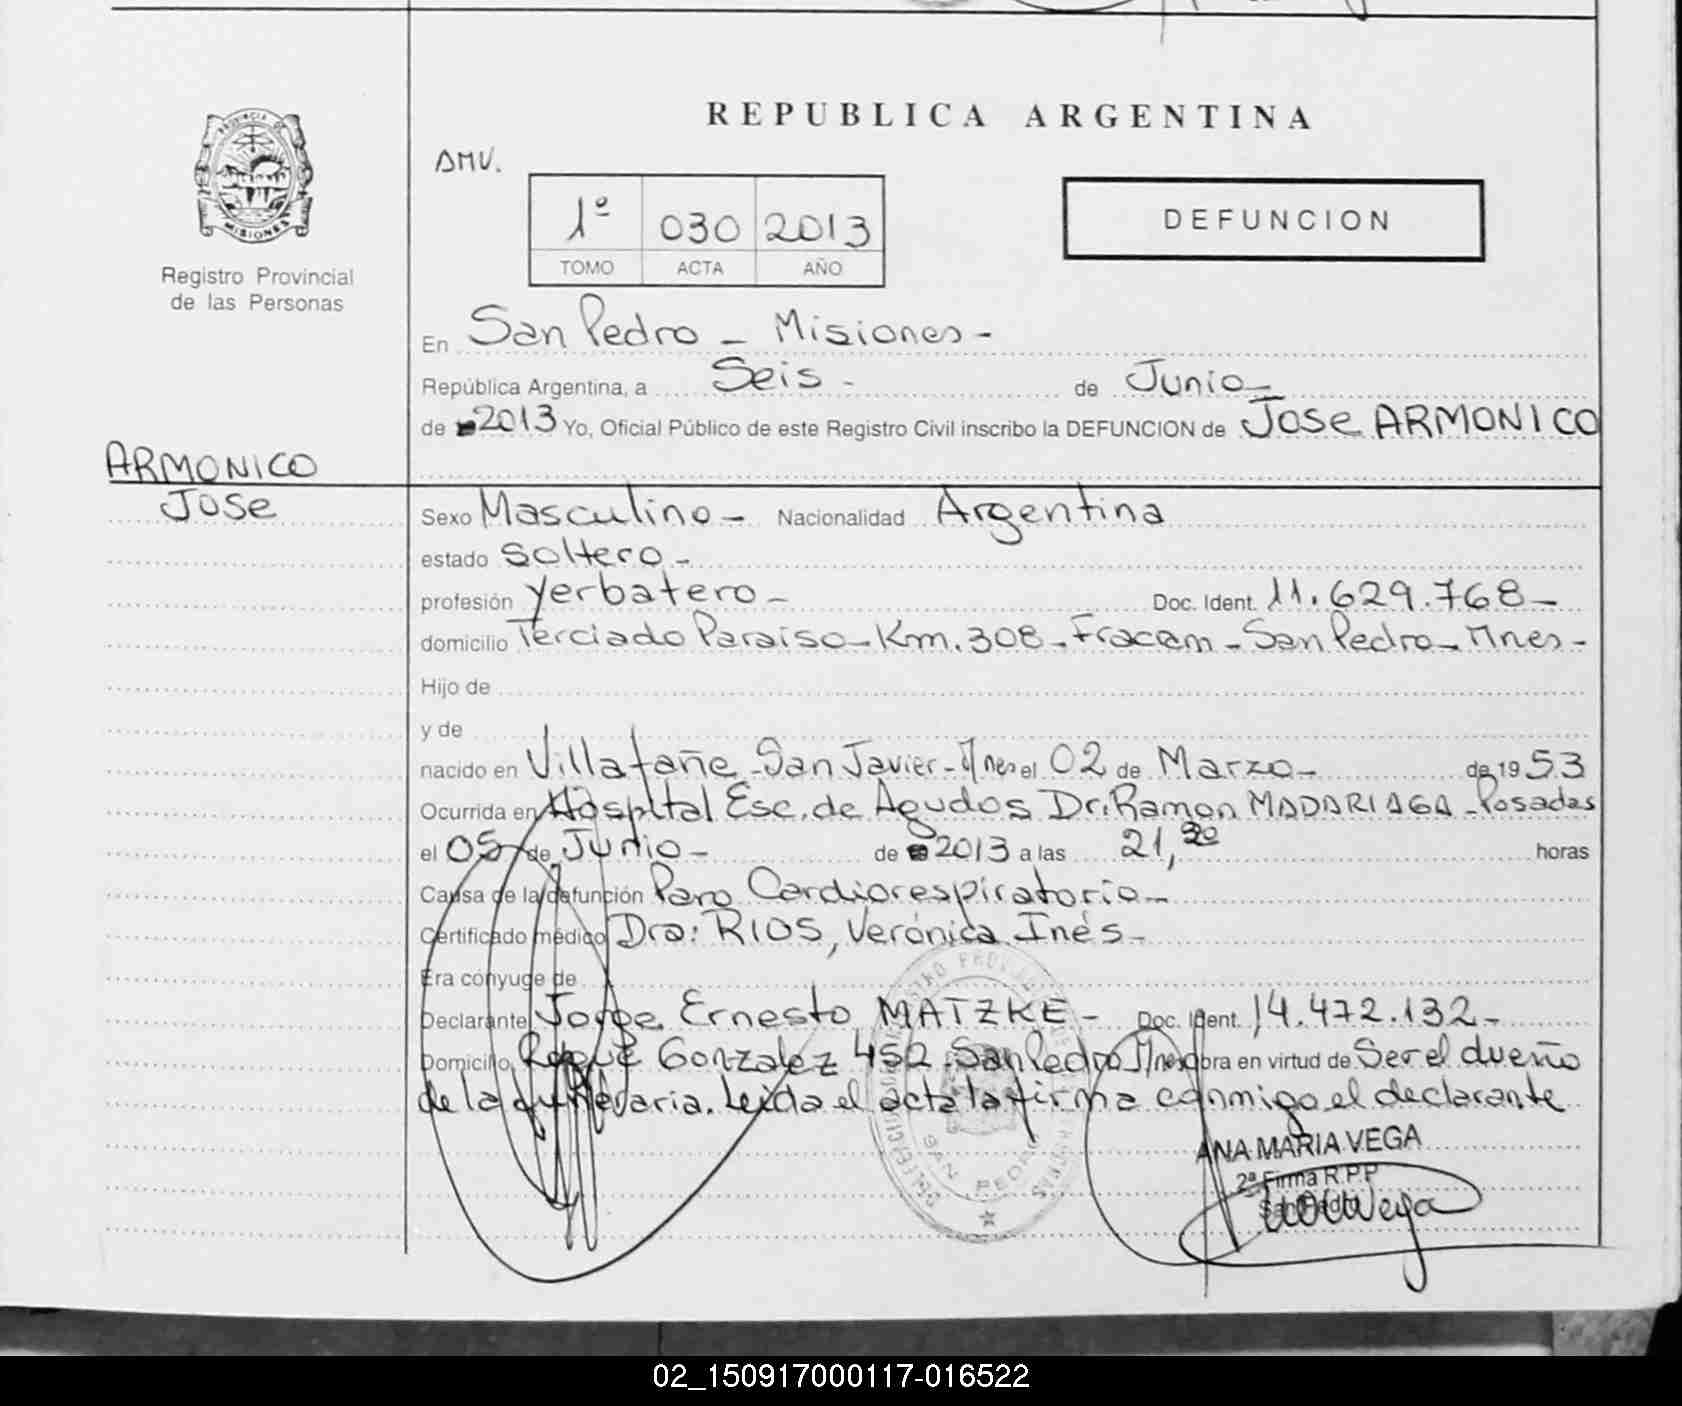 REPUBLICA ARGENTINA
AMV.
PROVINCIA DE
MISIONES
1º 030 2013
TOMO ACTA AÑO
DEFUNCION
Registro Provincial
de las Personas
En San Pedro - Misiones -
República Argentina, a Seis - de Junio -
de 2013 Yo, Oficial Público de este Registro Civil inscribo la DEFUNCION de Jose ARMONICO
ARMONICO
Jose
Sexo Masculino - Nacionalidad Argentina
estado Soltero -
profesión Yerbatero - Doc. Ident. 11.629.768 -
domicilio Terciado Paraiso - Km. 308 - Fracam - San Pedro - Mnes -
Hijo de
y de
nacido en Villafañe - San Javier - Mnes el 02 de Marzo - de 1953
Ocurrida en Hospital Esc. de Agudos Dr: Ramon MADARIAGA - Posadas
el 05 de Junio - de 2013 a las 21, horas
Causa de la defunción Paro Cardiorespiratorio -
Certificado médico Dra: RIOS, Verónica Inés -
Era cónyuge de
Declarante Jorge Ernesto MATZKE - Doc. Ident. 14.472.132 -
Domicilio Roque Gonzalez 452 - San Pedro Mnes obra en virtud de Ser el dueño
de la funeraria. Leida el acta la firma conmigo el declarante
ANA MARIA VEGA
2ª Firma R.P.P
San Pedro
SAN PEDRO
02_150917000117-016522